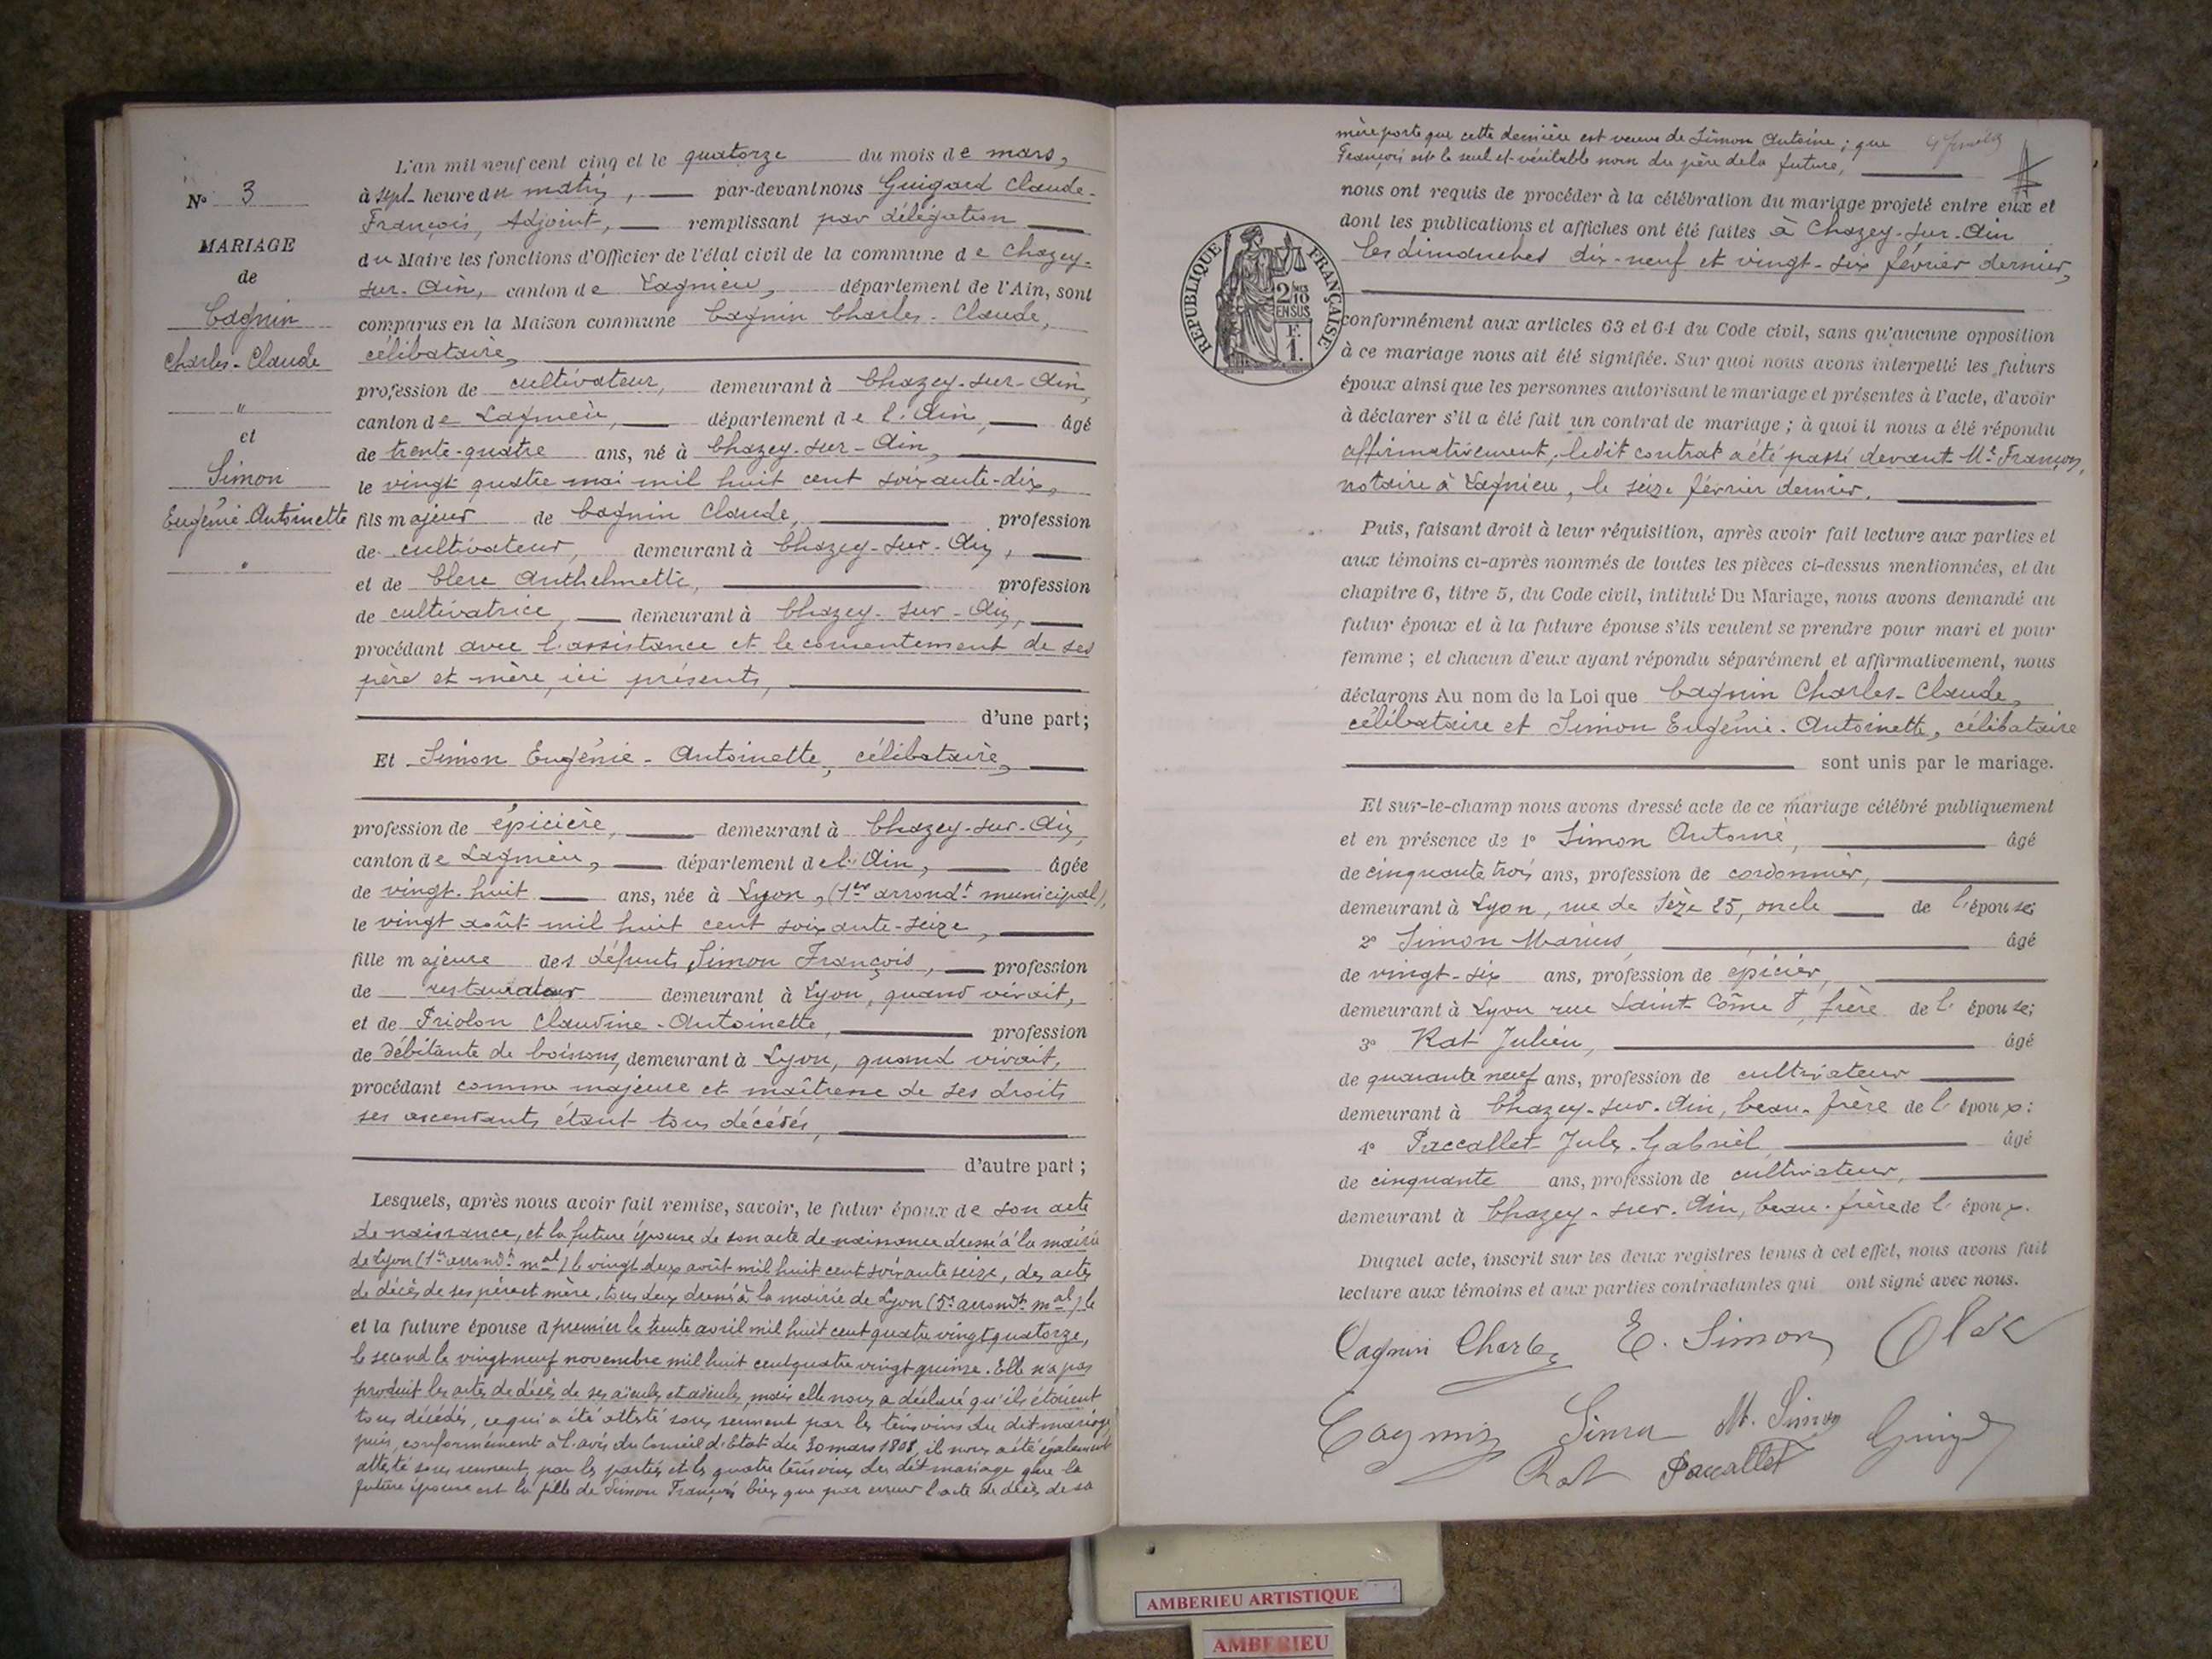 N° 3
MARIAGE
de
Cagnin
Charles-Claude
"
et
Simon
Eugénie-Antoinette
"
L'an mil neuf cent cinq et le quatorze du mois de mars,
à sept heure du matin, par-devant nous Guigard Claude-
François, Adjoint, remplissant par délégation
du Maire les fonctions d'Officier de l'état civil de la commune de Chazey-
sur-Ain, canton de Lagnieu, département de l'Ain, sont
comparus en la Maison commune Cagnin Charles-Claude,
célibataire,
profession de cultivateur, demeurant à Chazey-sur-Ain,
canton de Lagnieu, département de l'Ain, âgé
de trente-quatre ans, né à Chazey-sur-Ain,
le vingt quatre mai mil huit cent soixante-dix,
fils majeur de Cagnin Claude, profession
de cultivateur, demeurant à Chazey-sur-Ain,
et de Clerc Anthelmette, profession
de cultivatrice, demeurant à Chazey-sur-Ain,
procédant avec l'assistance et le consentement de ses
père et mère, ici présents,
d'une part;
Et Simon Eugénie-Antoinette, célibataire,
profession de épicière, demeurant à Chazey-sur-Ain,
canton de Lagnieu, département de l'Ain, âgée
de vingt-huit ans, née à Lyon, (1er arrondt municipal),
le vingt août mil huit cent soixante-seize,
fille majeure des défunts Simon François, profession
de restaurateur demeurant à Lyon, quand vivait,
et de Priolon Claudine-Antoinette, profession
de débitante de boissons, demeurant à Lyon, quand vivait,
procédant comme majeure et maîtresse de ses droits
ses ascendants étant tous décédés,
d'autre part;
Lesquels, après nous avoir fait remise, savoir, le futur époux de son acte
de naissance, et la future épouse de son acte de naissance dressé à la mairie
de Lyon (1er arrondt mal) le vingt deux août mil huit cent soixante seize, des actes
de décès de ses père et mère, tous deux dressés à la mairie de Lyon (5e arrondt mal) le
et la future épouse d premier le trente avril mil huit cent quatre vingt quatorze,
le second le vingt neuf novembre mil huit cent quatre vingt quinze. Elle n'a pas
produit les actes de décès de ses aïeuls et aïeules, mais elle nous a déclaré qu'ils étaient
tous décédés, ce qui a été attesté sous serment par les témoins du dit mariage,
puis, conformément à l'avis du Conseil d'Etat du 30 mars 1808, il nous a été également
attesté sous serment, par les parties et les quatre témoins du dit mariage que la
future épouse est la fille de Simon François bien que par erreur l'acte de décès de sa
mère porte que cette dernière est veuve de Simon Antoine; que
François est le seul et véritable nom du père de la future,
nous ont requis de procéder à la célébration du mariage projeté entre eux et
dont les publications et affiches ont été faites à Chazey-sur-Ain
les dimanches dix-neuf et vingt-six février dernier,
RÉPUBLIQUE FRANÇAISE
2/10
EN SUS
F.
1.
conformément aux articles 63 et 64 du Code civil, sans qu'aucune opposition
à ce mariage nous ait été signifiée. Sur quoi nous avons interpellé les futurs
époux ainsi que les personnes autorisant le mariage et présentes à l'acte, d'avoir
à déclarer s'il a été fait un contrat de mariage; à quoi il nous a été répondu
affirmativement, ledit contrat a été passé devant Me Françon,
notaire à Lagnieu, le seize février dernier.
Puis, faisant droit à leur réquisition, après avoir fait lecture aux parties et
aux témoins ci-après nommés de toutes les pièces ci-dessus mentionnées, et du
chapitre 6, titre 5, du Code civil, intitulé Du Mariage, nous avons demandé au
futur époux et à la future épouse s'ils veulent se prendre pour mari et pour
femme; et chacun d'eux ayant répondu séparément et affirmativement, nous
déclarons Au nom de la Loi que Cagnin Charles-Claude,
célibataire et Simon Eugénie-Antoinette, célibataire
sont unis par le mariage.
Et sur-le-champ nous avons dressé acte de ce mariage célébré publiquement
et en présence de 1° Simon Antoine, âgé
de cinquante trois ans, profession de cordonnier,
demeurant à Lyon, rue de Sèze 25, oncle de l'épouse;
2° Simon Marius, âgé
de vingt-six ans, profession de épicier,
demeurant à Lyon rue Saint Côme 8, frère de l'épouse;
3° Rat Julien, âgé
de quarante neuf ans, profession de cultivateur
demeurant à Chazey-sur-Ain, beau-frère de l'époux:
4° Paccallet Jules-Gabriel, âgé
de cinquante ans, profession de cultivateur,
demeurant à Chazey-sur-Ain, beau-frère de l'époux.
Duquel acte, inscrit sur les deux registres tenus à cet effet, nous avons fait
lecture aux témoins et aux parties contractantes qui ont signé avec nous.
Cagnin Charles E. Simon
Cagnin Simon M. Simon
Rat Paccallet
AMBERIEU ARTISTIQUE
AMBERIEU